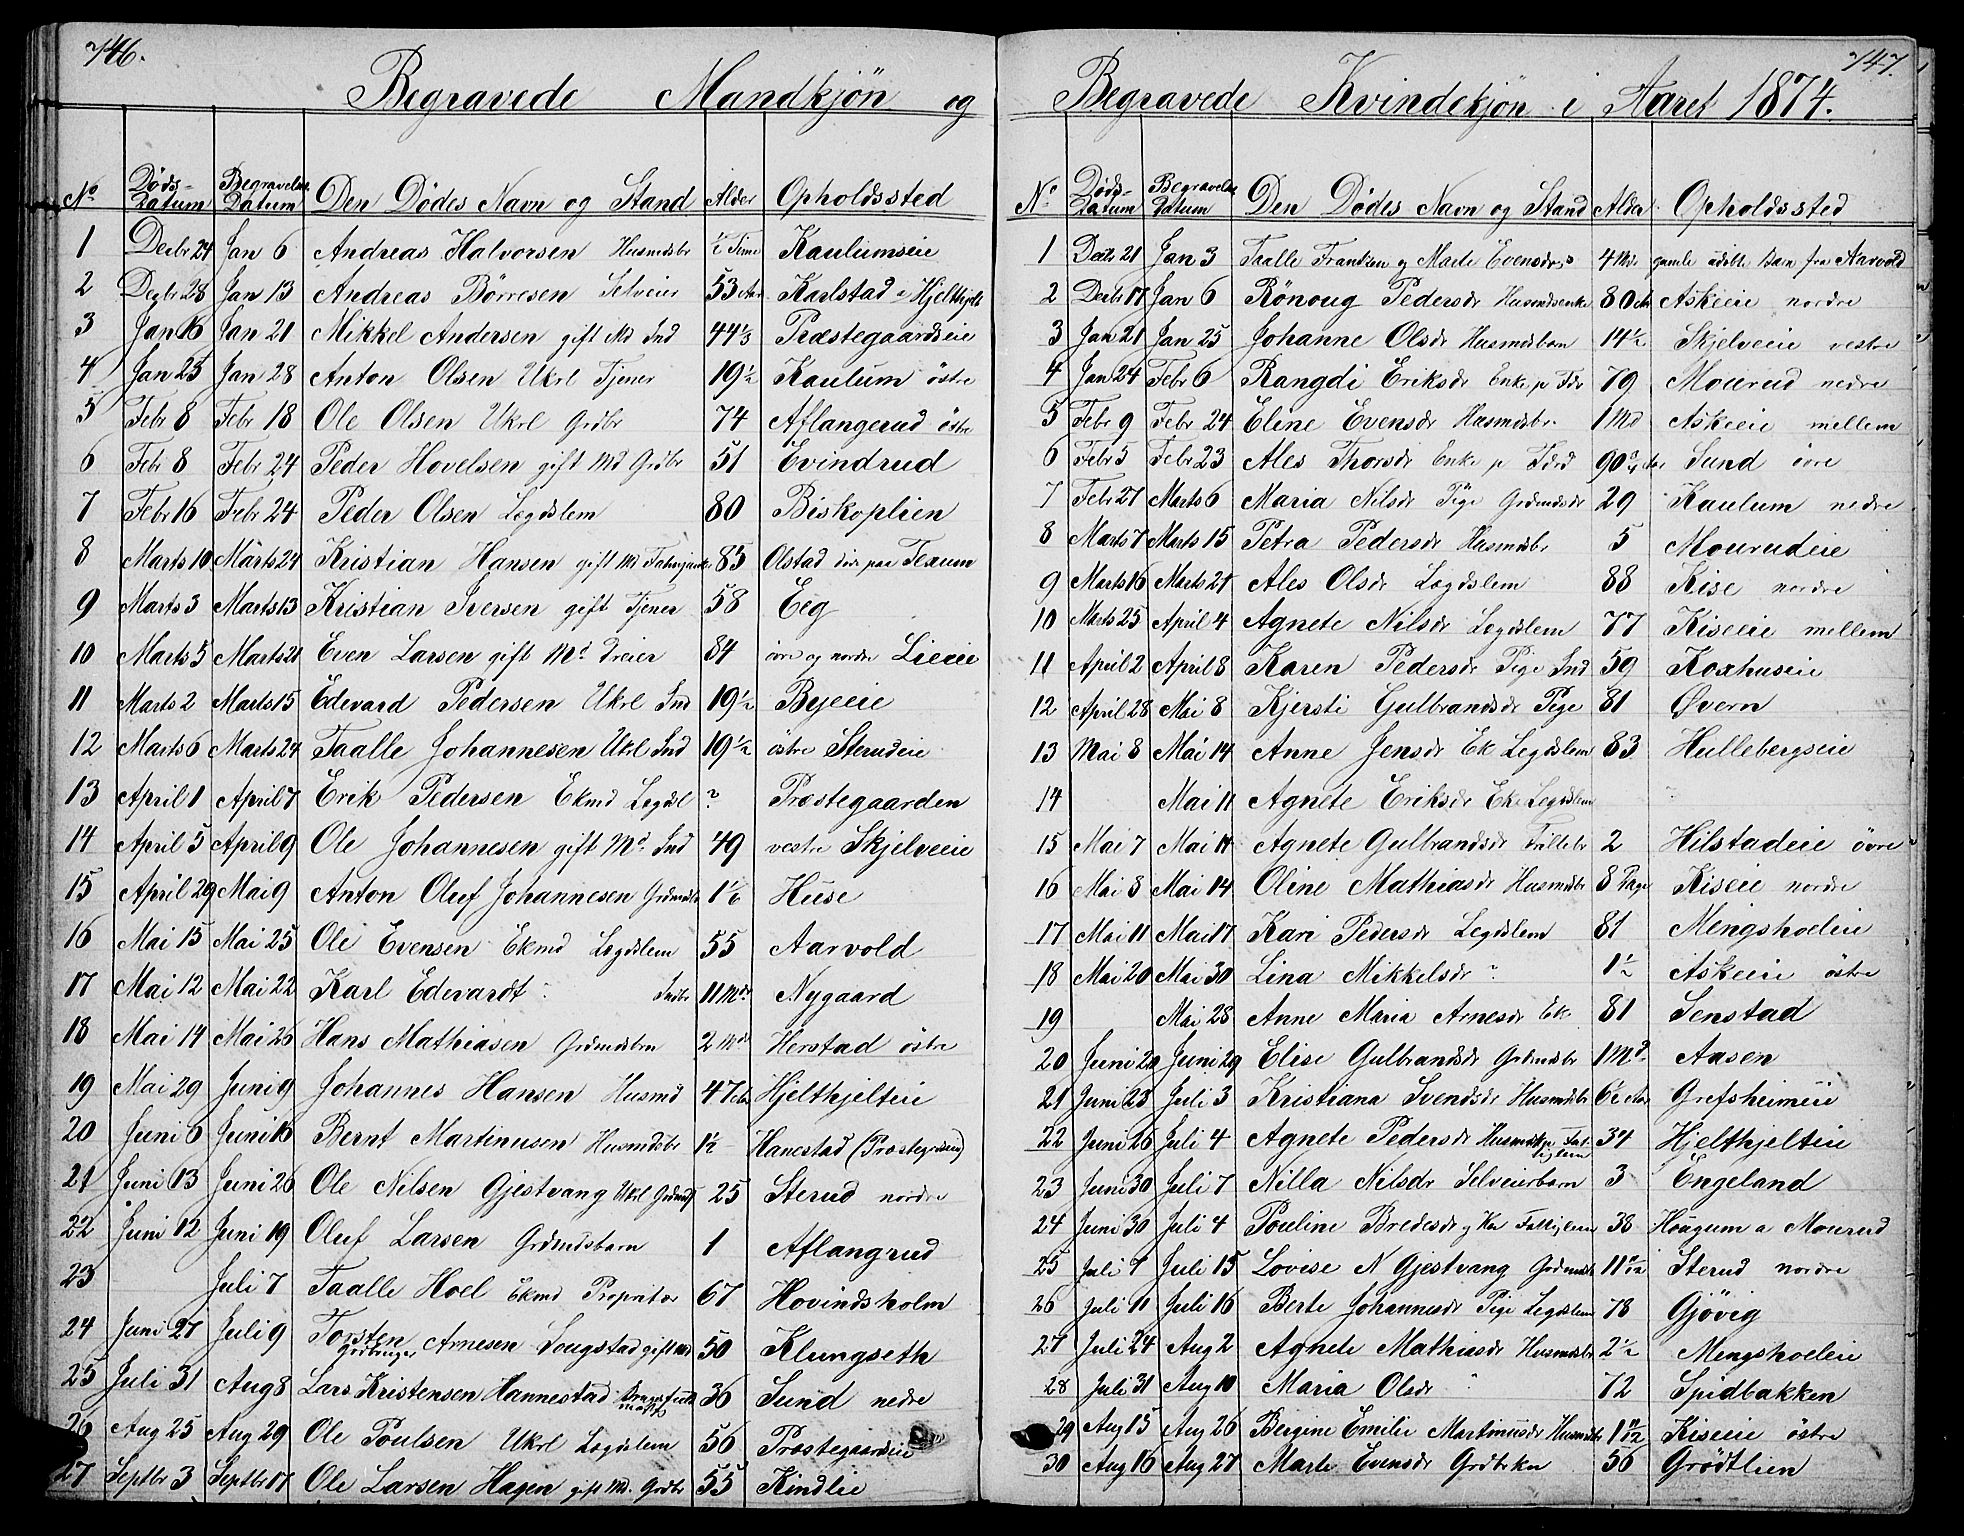 746.
Begravede Mandkjøn og
No Døds-Datum Begravelses Datum Den Dødes Navn og Stand Alder Opholdssted
1 Decbr 24 Jan 6 Andreas Halvorsen Husmdsbr ½ Time Kaulumseie
2 Decbr 28 Jan 13 Andreas Börresen Selveier 53 Aar Karlstad - Hjelthjelt
3 Jan 16 Jan 21 Mikkel Andersen gift Md Ind 44⅓ Præstegaardseie
4 Jan 25 Jan 28 Anton Olsen Ukrl Tjener 19½ Kaulum östre
5 Febr 8 Febr 18 Ole Olsen Ukrl Grdbr 74 Aflangerud östre
6 Febr 8 Febr 24 Peder Hovelsen gift Md Grdbr 51 Evindrud
7 Febr 16 Febr 24 Peder Olsen Lægdslem 80 Biskoplien
8 Marts 10 Märts 24 Kristian Hansen gift Md 85 Olstad paa Texum
9 Marts 3 Marts 13 Kristian Iversen gift Tjener 58 Eeg
10 Marts 5 Marts 21 Even Larsen gift Md Dreier 84 övre og nordre Lieeie
11 Marts 2 Marts 15 Edevard Pedersen Ukrl Ind 19½ Byeeie
12 Marts 6 Marts 24 Taalle Johannesen Ukrl Ind 19½ östre Sterudeie
13 April 1 April 7 Erik Pedersen Ekmd Legdsl ? Prostegaarden
14 April 5 April 9 Ole Johannesen gift Md. Ind 49 vestre Skjelveeie
15 April 29 Mai 9 Anton Oluf Johannesen Grdmdsbr 1⅙ Huse
16 Mai 15 Mai 25 Ole Evensen Ekmd Lægdslem 55 Aarvold
17 Mai 12 Mai 22 Karl Edevardt Indbr 11 Mdr Nygaard
18 Mai 14 Mai 26 Hans Mathiasen Grdmdsbrn 2 Mdr Herstad östre
19 Mai 29 Juni 9 Johannes Hansen Husmd 47 Aar Hjelthjelteie
20 Juni 6 Juni 16 Bernt Martinusen Husmdsbr 1½ Hanestad
21 Juni 13 Juni 26 Ole Nilsen Gjestvang Ukrl 25 Sterud nordre
22 Juni 12 Juni 19 Oluf Larsen Grdmdsbarn 1 Aflangrud
23 Juli 7 Taalle Hoel Ekmd Propritær 67 Hovindsholm
24 Juni 27 Juli 9 Torsten Arnesen Lougstad gift Md 50 Klungseth
Grdbruger
25 Juli 31 Aug 8 Lars Kristensen Hannestad 36 Sund nedre
26 Aug 25 Aug 29 Ole Poulsen Ukrl Lægdslem 56 Prostegaardseie
27 Septbr 3 Septbr 17 Ole Larsen Hagen gift Md. Grdbr 55 Kindlie
747.
Begravede Kvindekjön i Aaret 1874.
No. Døds-Datum Begravelses Datum Den Dødes Navn og Stand Alder Opholdssted
1 Decbr 21 Jan 3 Taalle Frantzen og Marte Evensdrs 4 Md. gamle udöbte Barn fra Aarvold
2 Decbr 17 Jan 6 Rönoug Pedersdr Husmdsenke 80 Aar Askeeie nordre
3 Jan 21 Jan 25 Johanne Olsdr Husmdsbarn 14½ Skjelveie vestre
4 Jan 24 Febr 6 Rangdi Eriksdr Enke p Fdr 79 Mourud nedre
5 Febr 9 Febr 24 Eline Evensdr Husmdsbr. 1 Md Askeeie mellem
6 Febr 5 Febr 23 Ales Thorsdr Enke p Fdrd 90¾ Aar Sund övre
7 Febr 27 Marts 6 Maria Nilsdr Pige Grdmdsdr 29 Kaulum nedre
8 Marts 7 Marts 15 Petra Pedersdr Husmdsbr 5 Mourudeie
9 Marts 16 Marts 21 Ales Olsdr Lægdslem 88 Kise nordre
10 Marts 25 April 4 Agnete Nilsdr Lægdslem 77 Kiseeie mellem
11 April 2 April 8 Karen Pedersdr Pige Ind 59 Koxhuseie
12 April 28 Mai 8 Kjersti Gulbrandsdr Pige 81 Øvern
13 Mai 8 Mai 14 Anne Jensdr Ek Legdslem 83 Hullebergseie
14 Mai 11 Agnete Eriksdr Eke Legdslem
15 Mai 7 Mai 11 Agnete Gulbrandsdr 2 Hilstadeie övre
16 Mai 8 Mai 14 Oline Mathiasdr Husmdsbr 8 Dage Kiseie nordre
17 Mai 11 Mai 17 Kari Pedersdr Legdslem 81 Mengshoeleie
18 Mai 20 Mai 30 Lina Mikkelsdr ? 1½ Askeeie östre
19 Mai 28 Anne Maria Arnesdr Ek. 81 Senstad
20 Juni 20 Juni 29 Elise Gulbrandsdr Grdmdsbr 1 Md. Aasen
21 Juni 23 Juli 3 Kristiana Svendsdr Husmdsbr 6½ Aar Grefsheimeie
22 Juni 26 Juli 4 Agnete Pedersdr 34 Hjelthjelteie
23 Juni 30 Juli 7 Nilla Nilsdr Selveierbarn 3 Engeland
24 Juni 30 Juli 4 Pouline Bredesdr 38 Hougum a Mourud
25 Juli 7 Juli 15 Lovise N Gjestvang Grdmdsbr 11 Sterud nordre
26 Juli 11 Juli 16 Berte Johannesdr Pige Legdslem 78 Gjövig
27 Juli 24 Aug 2 Agnete Mathiasdr Husmdsbr 2½ Mengshoeleie
28 Juli 31 Aug 10 Maria Olsdr 72 Spidbakken
29 Aug 15 Aug 26 Bergine Emilie Martinusdr Husmdsbr 1 11/12 Kiseeie östre
30 Aug 16 Aug 27 Marte Evensdr 56 Grödtlien